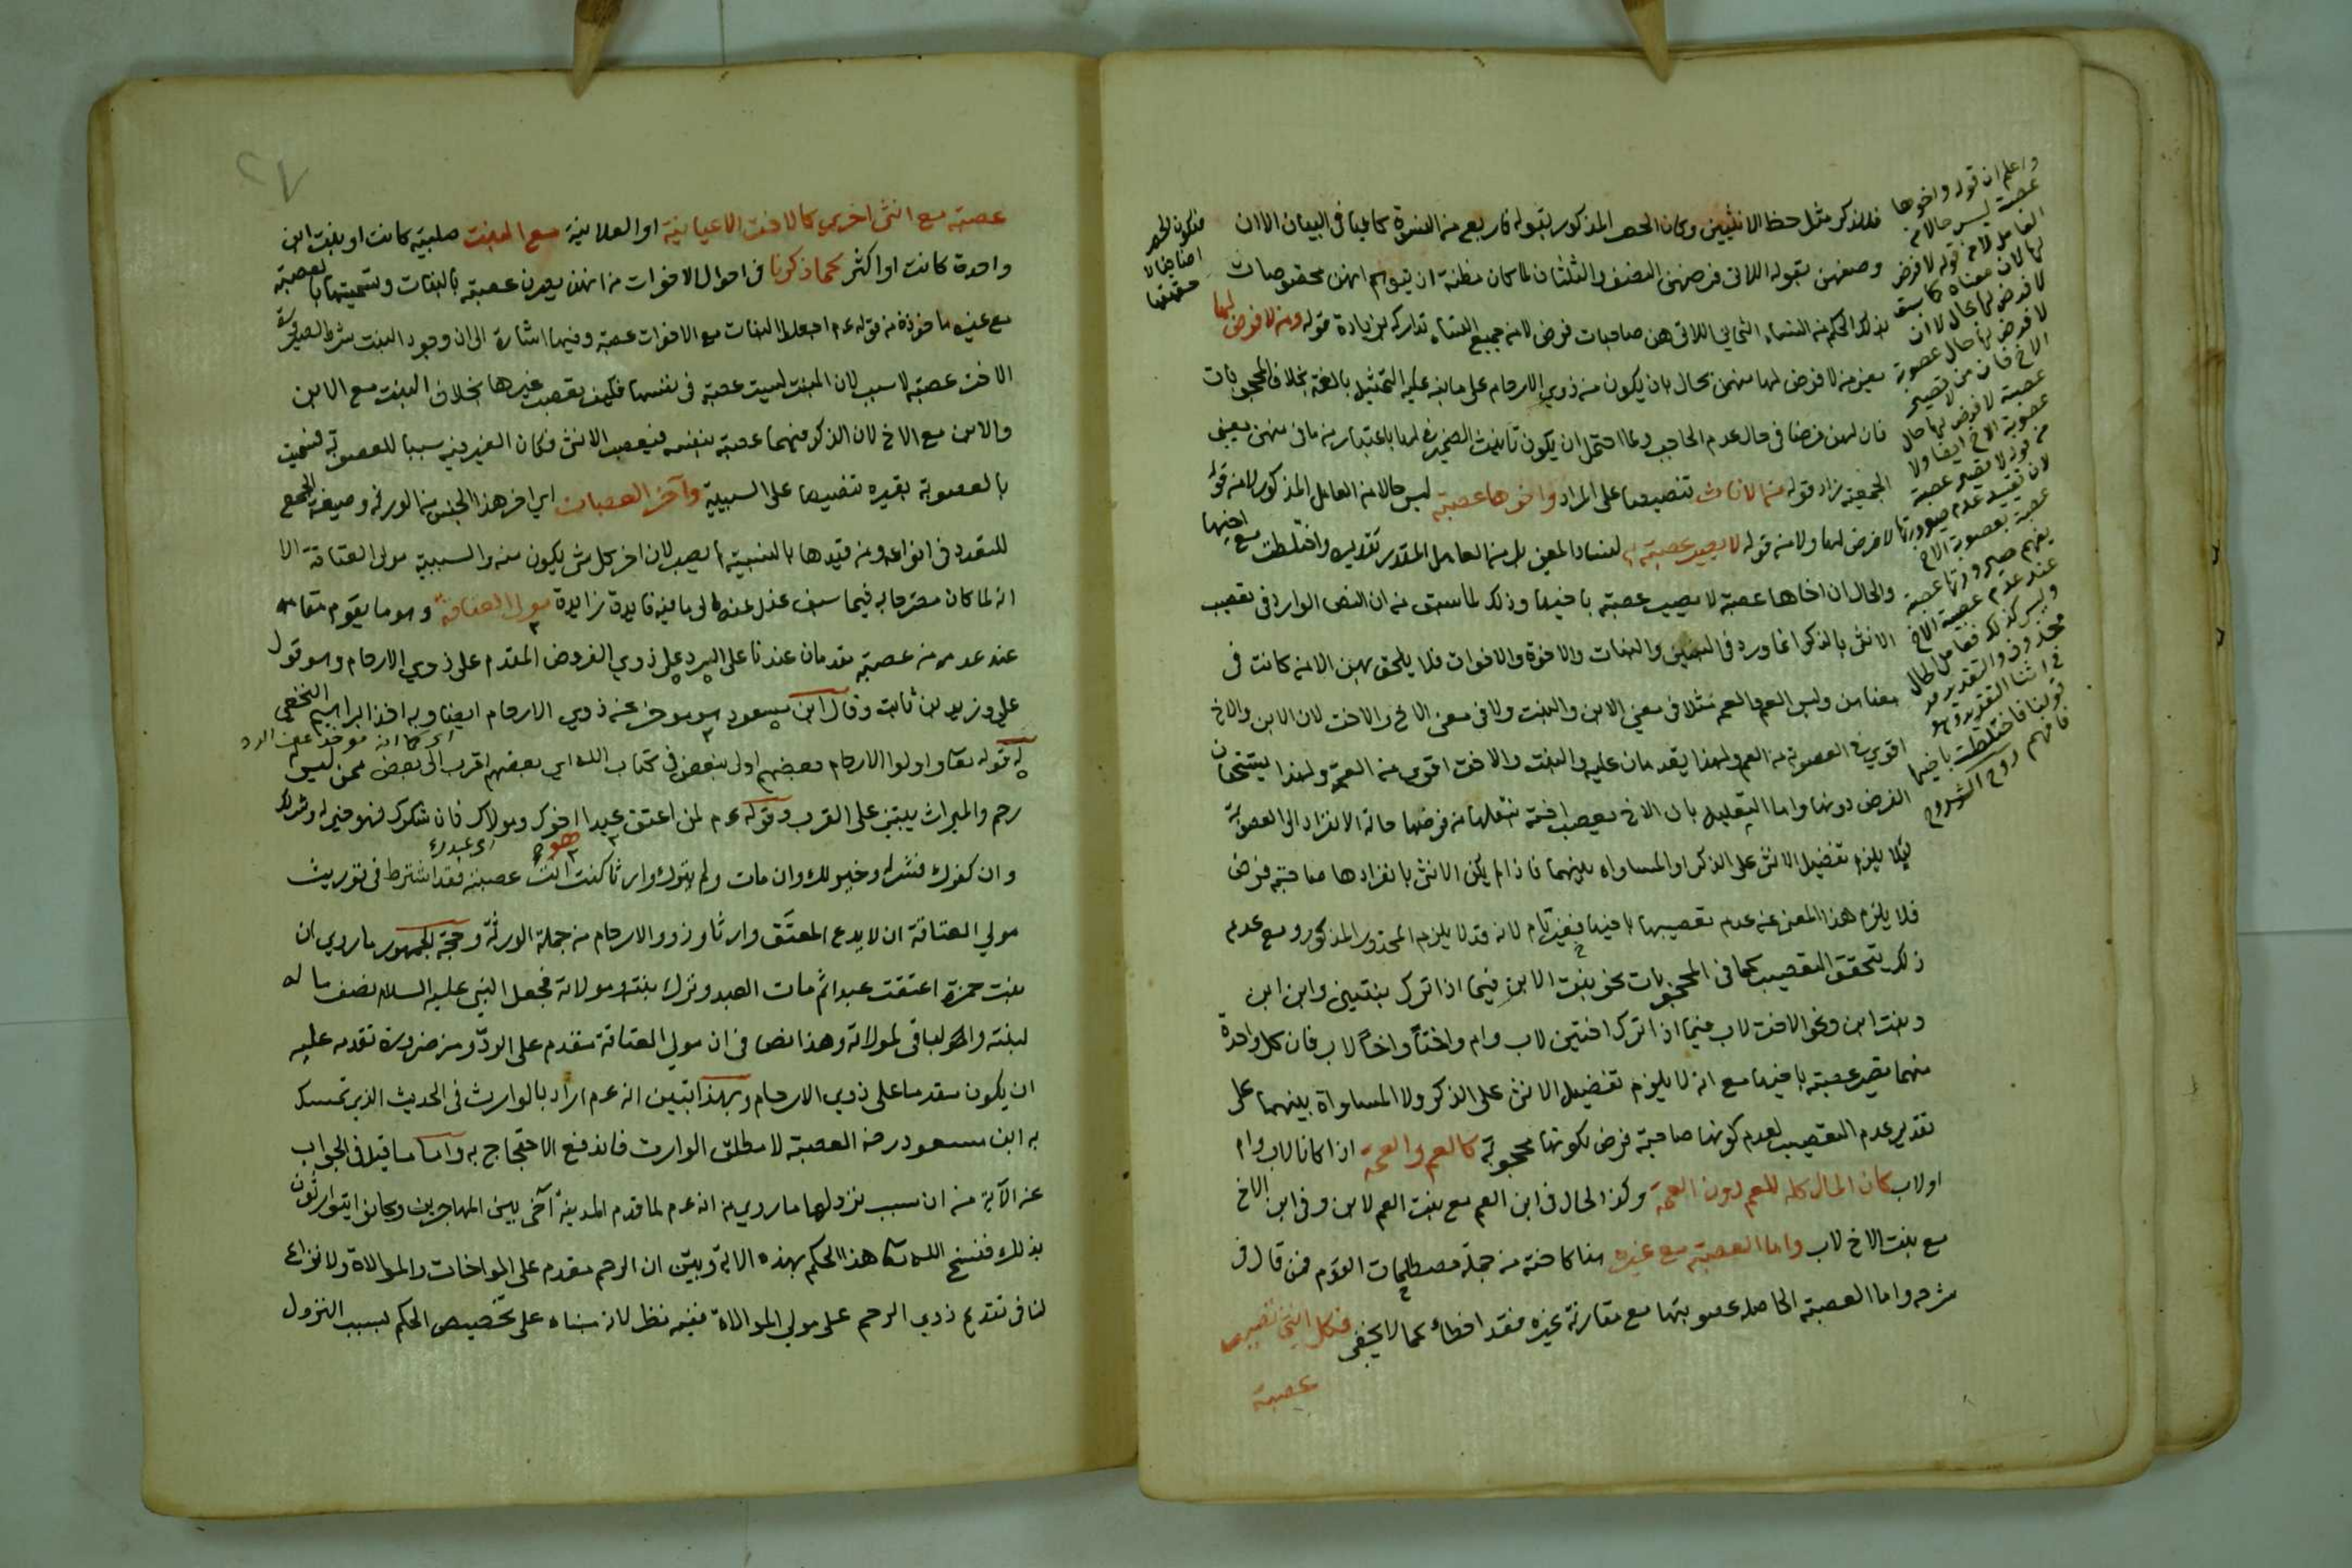 فللذكر مثل حظ الانثيين وكان الحصر المذكور بقوله فاربع من النسوة كافيا في البيان الا ان
وصفهن بقوله اللاتي فرضهن النصف والثلثان لما كان مظنة ان يتوهم انهن مخصوصات
بذلك الحكم من النساء اللاتي هن صاحبات فرض لا من جميع النساء تداركه بزيادة قوله ومن لا فرض لها
يعني من لا فرض لها منهن بحال بان يكون من ذوي الارحام على ما ينبه عليه التمثيل بالعمة بخلاف المحجوبات
فان لهن فرضا في حال عدم الحاجب ولما احتمل ان يكون تأنيث الضمير في لها باعتبار من ما في منهن معنى
الجمعية زاد قوله من الاناث تنصيصا على المراد واخوها عصبة ليس حالا من العامل المذكور لا من قوله
لا فرض لها ولا من قوله لا يصير عصبة لفساد المعنى بل من العامل المقدر تقديره واختلطت مع اخيها
والحال ان اخاها عصبة لا تصير عصبة باخيها وذلك لما سبق من ان النص الوارد في تعصيب
الانثى بالذكر انما ورد في البنين والبنات والاخوة والاخوات فلا يلحق بهن الا من كانت في
معناهن وليس العم والعمة مثلا في معنى الابن والبنت ولا في معنى الاخ والاخت لان الابن والاخ
اقوى في العصوبة من العم ولهذا يقدمان عليه والبنت والاخت اقوى من العمة ولهذا يستحقان
الفرض دونها واما التعليل بان الاخ يعصب اخته بنقلها من فرضها حالة الانفراد الى العصوبة
لئلا يلزم تفضيل الانثى على الذكر او المساواة بينهما فاذا لم يكن الانثى بانفرادها صاحبة فرض
فلا يلزم هذا المعنى عند عدم تعصيبها باخيها فغير تام لانه قد لا يلزم المحذور المذكور ومع عدم
ذلك يتحقق التعصيب كما في المحجوبات نحو بنت الابن فيما اذا ترك بنتين وابن ابن
وبنت ابن ونحو الاخت لاب فيما اذا ترك اختين لاب وام واختاً واخاً لاب فان كل واحدة
منهما تصير عصبة باخيها مع انه لا يلزم تفضيل الانثى على الذكر ولا المساواة بينهما على
تقدير عدم التعصيب لعدم كونها صاحبة فرض لكونها محجوبة كالعم والعمة اذا كانا لاب وام
او لاب كان المال كله للعم دون العمة وكذا الحال في ابن العم مع بنت العم لابن وفي ابن الاخ
مع بنت الاخ لاب واما العصبة مع غيره هنا كاخته من جملة مصطلحات القوم فمن قال في
شرحه واما العصبة الحاصلة عصوبتها مع مقارنة غيره فقد اخطأ كما لا يخفى فكل انثى تصير
عصبة
فتكون الحصر
اضافيا لا
حقيقيا
واعلم ان قوله واخوها
عصبة ليس حالا من
العامل لا من قوله لا فرض
لها لان معناه كما سبق
لا فرض لها بحال لا ان
لا فرض لها حال عصوبة
الاخ فان من لا تصير
عصبة لا فرض لها حال
عصوبة الاخ ايضا ولا
من قوله لا تصير عصبة
لان تقييد عدم صيرورتها
عصبة بعصوبة الاخ
يفهم صيرورتها عصبة
عند عدم عصبية الاخ
وليس كذلك فعامل الحال
محذوف والتقدير
في اثناء التقدير وهو
قولنا فاختلطت باخيها
فافهم روح الشروح
٢٧
عصبة مع انثى اخرى كالاخت الاعيانية او العلانية مع البنت صلبية كانت او بنت ابن
واحدة كانت او اكثر كما ذكرنا في احوال الاخوات من انهن يصرن عصبة بالبنات وتسميتها بالعصبة
مع غيره مأخوذة من قوله عم اجعلوا البنات مع الاخوات عصبة وفيها اشارة الى ان وجود البنت شرط لصيرورة
الاخت عصبة لا سبب لان البنت ليست عصبة في نفسها فكيف تعصب غيرها بخلاف البنت مع الابن
والابن مع الاخ لان الذكر منهما عصبة بنفسه فيعصب الانثى فكان الغير فيه سببا للعصوبة فسميت
بالعصوبة بغيره تنصيصا على السببية وآخر العصبات اي اخر هذا الجنس من الورثة وصيغة الجمع
للتعدد في انواعه ومن قيدها بالنسبية لم يصب لان اخر كل شئ يكون منه والسببية مولى العتاقة الا
انه لما كان معترفا به فيما سبق عدل عنه الى ما فيه فايدة زايدة مولى العتاقة وهو ما يقوم مقامه
عند عدمه من عصبة مقدمان عندنا على الرد على ذوي الفروض المقدم على ذوي الارحام وهو قول
علي وزيد بن ثابت وقال ابن مسعود هو مؤخر عن ذوي الارحام ايضا وبه اخذ ابراهيم النخعي
اي كما انه مؤخر عن الرد
له قوله تعا واولوا الارحام بعضهم اولى ببعض في كتاب الله اي بعضهم اقرب الى بعض ممن ليس
رحم والميراث يبتني على القرب وقوله عم لمن اعتق عبدا هو اخوك ومولاك فان شكرك فهو خير له وشر لك
وان كفرك فشر له وخير لك وان مات ولم يترك وارثا كنت انت عصبته فقد اشترط في توريث
مولى العتاقة ان لا يدع المعتَق وارثا وذوو الارحام من جملة الورثة وحجة الجمهور ما روي ان
بنت حمزة اعتقت عبدا ثم مات العبد وترك بنته ومولاته فجعل النبي عليه السلام نصف ماله
لبنته والباقي لمولاته وهذا نص في ان مولى العتاقة مقدم على الردّ ومن ضرورة تقدمه عليه
ان يكون مقدما على ذوي الارحام وبهذا تبين انه عم اراد بالوارث في الحديث الذي تمسك
به ابن مسعود رضه العصبة لا مطلق الوارث فاندفع الاحتجاج به واما ما قيل في الجواب
عن الآية من ان سبب نزولها ما روي من انه عم لما قدم المدينة آخى بين المهاجرين وكانوا يتوارثون
بذلك فنسخ الله تعا هذا الحكم بهذه الاية وبيّن ان الرحم مقدم على المواخات والموالاة ولا نزاع
لنا في تقديم ذوي الرحم على مولى الموالاة ففيه نظر لان مبناه على تخصيص الحكم بسبب النزول